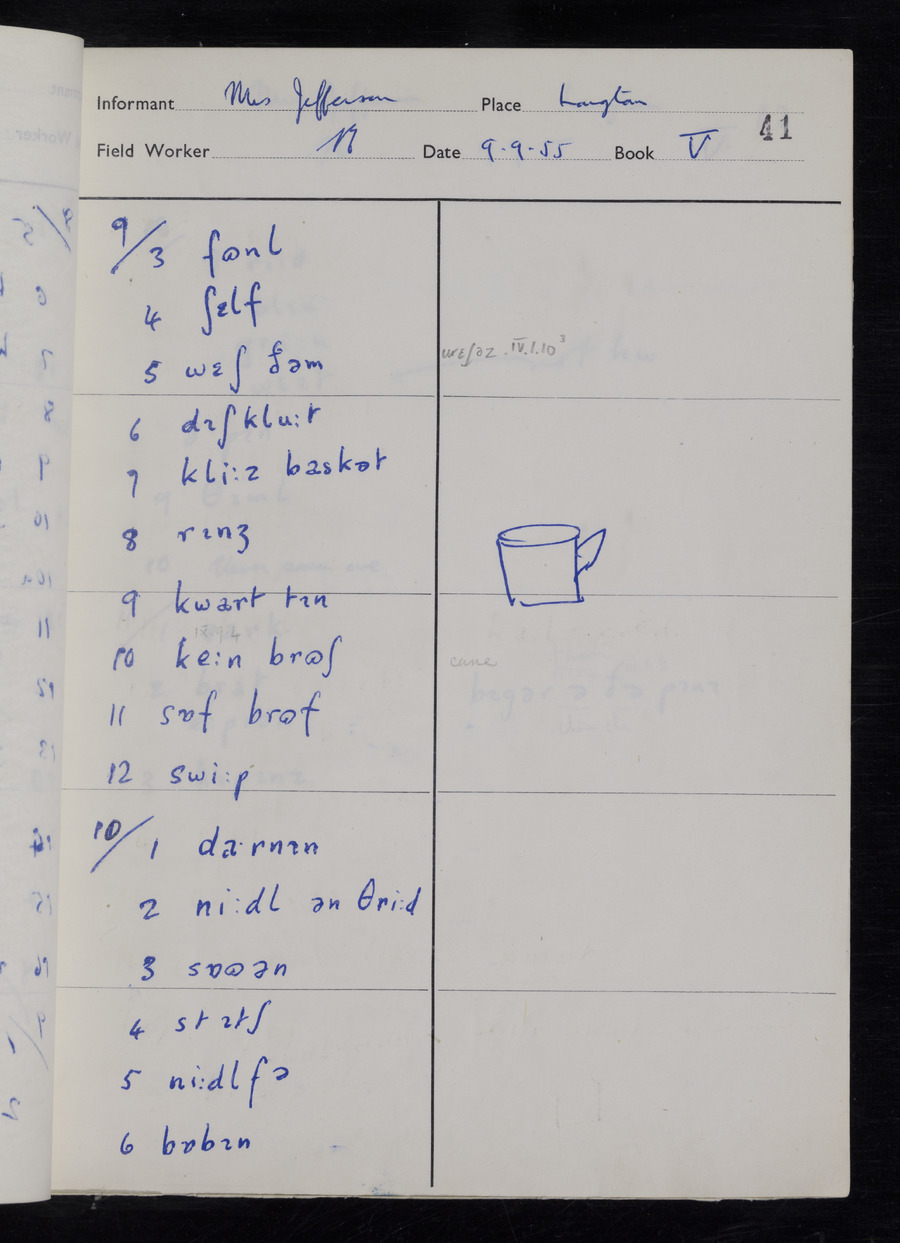 Informant Mrs Jefferson Place Langton
41
Field Worker Date 9.9.55 Book V
9/3 fɷnl
4 ʃɛlf
5 wɛʃ ðəm
wɛʃəz .IV.1.10³
6 dɪʃklu:t
7 kli:z baskət
8 rɪnʒ
9 kwart tɪn
10 ke:n brɷʃ
cane
11 sɒf brɷʃ
12 swi:p
10/1 da·rnɪn
2 ni:dl ən θri:d
3 sɒɷən
4 stɪtʃ
5 ni:dlfə
6 bɒbɪn